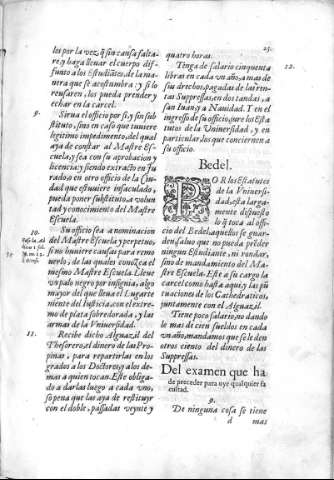 25.
les por la vez, q̃ sin causa falta-
re, y haga llevar el cuerpo dif-
funto a los Estudiãtes, de la ma-
nera que se acostumbra: y si lo
reusaren, los pueda prender, y
echar en la carcel.
9.
Sirua el officio por si, y sin sub-
stituto, sino en caso que tuuiere
legitimo impedimento, del qual
aya de constar al Mastre Es-
cuela, y sea con su aprobacion y
licencia, y siendo extracto en Ju-
rado, o en otro officio de la Ciu-
dad que estuuiere insaculado,
pueda poner substituto, a volun
tad y conocimiento del Mastre
Escuela.
10.
Su officio sea a nominacion
del Mastre Escuela y perpetuo,
si no huuiere causas para remo
uerlo, de las quales conozca el
mismo Mastre Escuela. Lleue
vn palo negro por insignia, algo
mayor del que lleua el Lugarte
niente del Iusticia, con el extre-
mo de plata sobredorada, y las
armas de la Vniuersidad.
11.
Recibe dicho Alguazil del
Thesorero, el dinero de las Pro-
pinas, para repartirlas en los
grados a los Doctores, y a los de-
mas a quien tocan. Este obliga-
do a darlas luego a cada vno,
so pena que las aya de restituyr
con el doble, passadas veynte y
quatro horas.
12.
Tẽga de salario cinquenta
libras en cada vn año, a mas de
sus drechos, pagadas de las ren-
tas Suppressas, en dos tandas, a
san Iuan, y a Nauidad. Y en el
ingresso de su officio, jure los Esta
tutos de la Vniuersidad, y en
particular los que conciernen a
su officio.
Bedel.
POR los Estatutos
de la Vniuersi-
dad, esta larga-
mente dispuesto
lo q̃ toca al offi-
cio del Bedel, aquellos se guar-
den, saluo que no pueda prẽder
ningun Estudiante, ni rondar,
sino de mandamiento del Mas-
tre Escuela. Este a su cargo la
carcel como hasta aqui, y las pũ
tuaciones de los Cathedraticos,
juntamente con el Alguazil.
Tiene poco salario, no dando
le mas de cien sueldos en cada
vn año, mandamos que se le den
otros ciento del dinero de las
Suppressas.
Del examen que ha
de preceder para oyr qualquier fa
cultad.
9.
De ninguna cosa se tiene
d mas